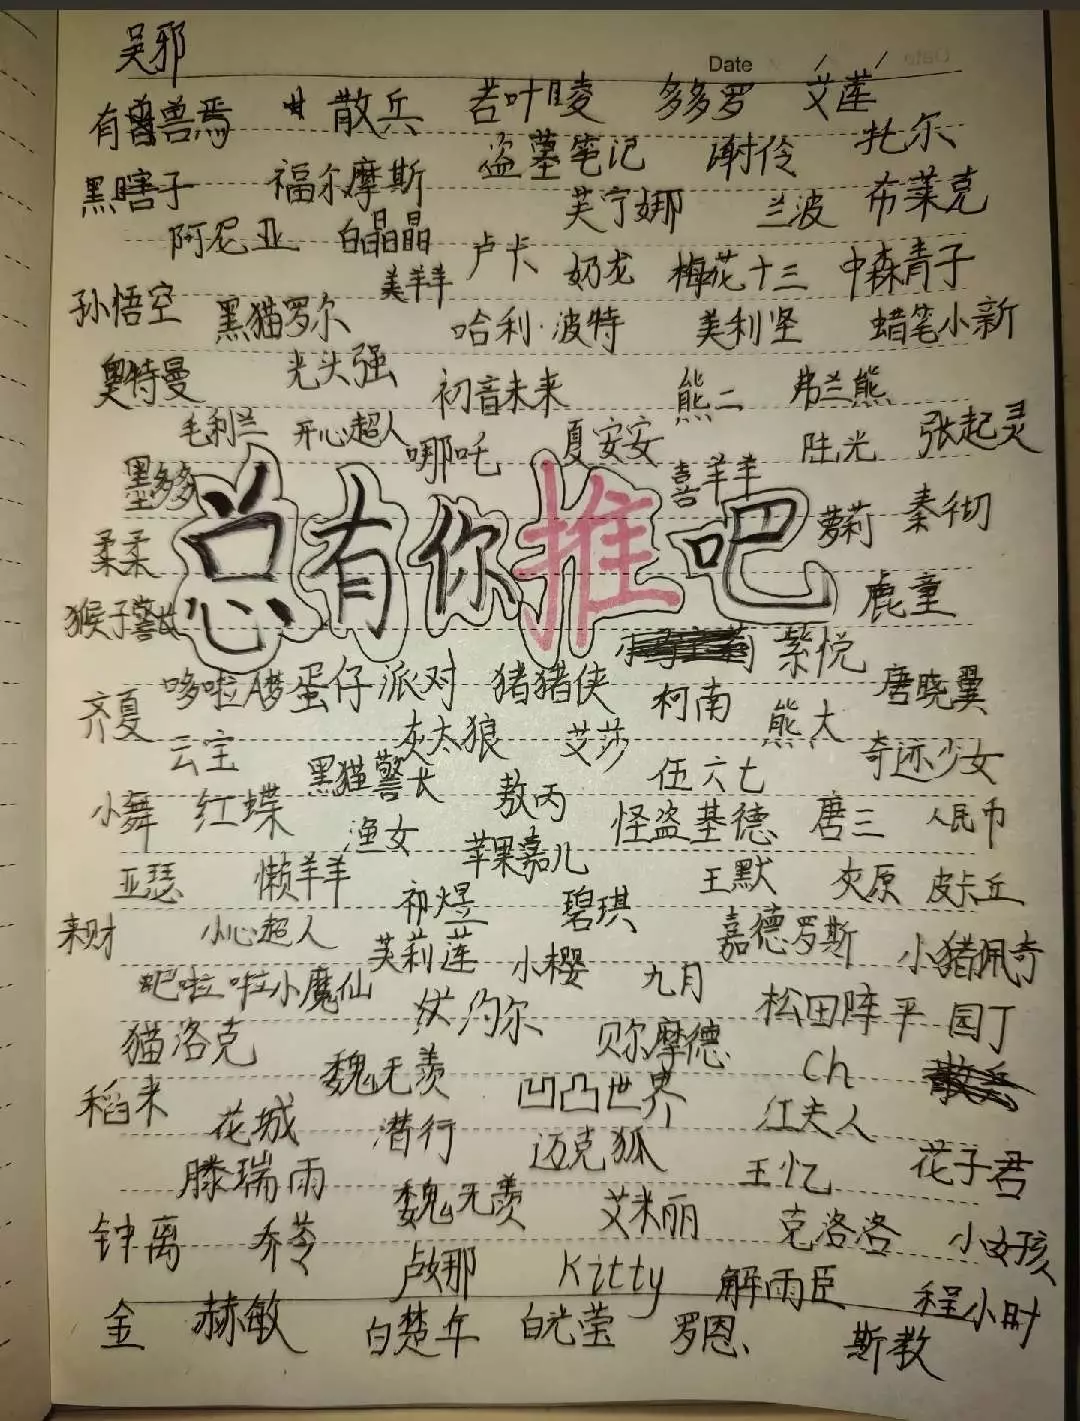 吴邪
Date / /
有兽兽焉 散兵 若叶睦 多多罗 艾莲
盗墓笔记 谢伶 扎尔
黑瞎子 福尔摩斯 芙宁娜 兰波 布莱克
阿尼亚 白晶晶 卢卡 奶龙 梅花十三 中森青子
美羊羊
孙悟空 黑猫罗尔 哈利·波特 美利坚 蜡笔小新
奥特曼 光头强 初音未来 熊二 弗兰熊
毛利兰 开心超人 哪吒 夏安安 陆光 张起灵
墨多多 喜羊羊
总有你推吧
柔柔 萝莉 秦彻
猴子警长 鹿童
紫悦
哆啦A梦 蛋仔派对 猪猪侠 柯南 唐晓翼
齐夏 云宝 灰太狼 艾莎 熊大 奇迹少女
黑猫警长 敖丙 伍六七
小舞 红蝶 渔女 怪盗基德 唐三 人民币
苹果嘉儿
亚瑟 懒羊羊 祁煜 碧琪 王默 灰原 皮卡丘
来财 小心超人 芙莉莲 小樱 九月 嘉德罗斯 小猪佩奇
吧啦啦小魔仙 约尔 松田阵平 园丁
猫洛克 魏无羡 贝尔摩德 Ch
稻米 花城 潜行 凹凸世界 红夫人
滕瑞雨 迈克狐 王忆 花子君
魏无羡 艾米丽 克洛洛 小女孩
钟离 乔苓 卢娜 Kitty 解雨臣 程小时
金 赫敏 白楚年 白光莹 罗恩、 斯教